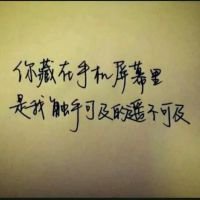 你藏在手机屏幕里
是我触手可及的遥不可及